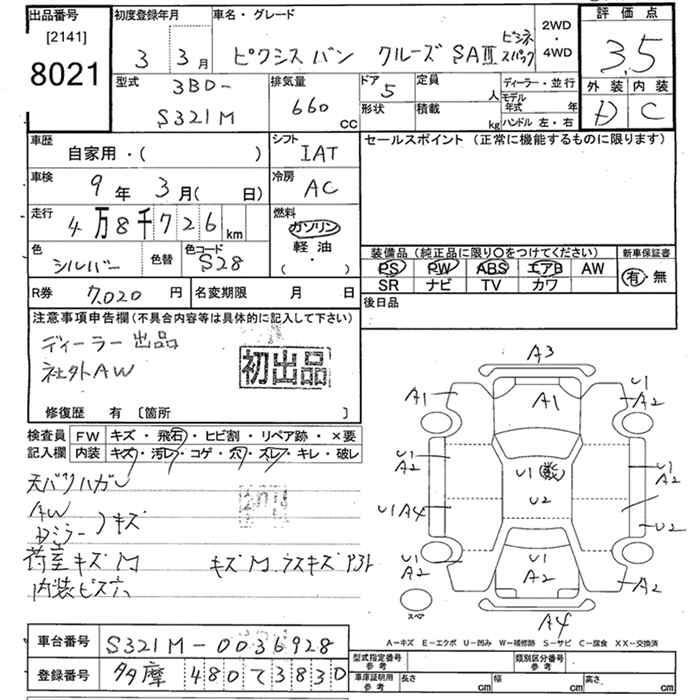 出品番号 初度登録年月 車名・グレード 評価点
[2141] 3 3月 ピクシス バン クルーズ SAⅢ ビジネスパック 2WD・4WD 3.5
8021 型式 3BD-S321M 排気量 660 CC ドア 5 定員 人 ディーラー・並行 外装 内装
形状 積載 kg モデル年式 年 ハンドル 左・右 D C
車歴 自家用・( ) シフト IAT セールスポイント (正常に機能するものに限ります)
車検 9年 3月( 日) 冷房 AC
走行 4万8千726km 燃料 ガソリン
軽油
( ・ )
色 シルバー 色替 色コード S28 装備品 (純正品に限り〇をつけてください) 新車保証書
PS PW ABS エアB AW 有・無
R券 7,020円 名変期限 月 日 SR ナビ TV カワ
注意事項申告欄(不具合内容等は具体的に記入して下さい) 後日品
ディーラー出品
社外AW 初出品
修復歴 有 [箇所 ]
検査員 FW キズ・飛石・ヒビ割・リペア跡・×要
記入欄 内装 キズ・汚レ・コゲ・穴・ズレ・キレ・破レ
天バリハガレ
AW
Dミラー キズ
荷室キズM キズM ラスキズ
内装ビス穴
A3
A1 A1 U1 A2
U1 A2 U1 U1 A2
U2
U1 A4 U2
U1 A2 U1 A2 A2
スペア A4
A-キズ E-エクボ U-凹み W-補修跡 S-サビ C-腐食 XX-交換済
車台番号 S321M-0036928
登録番号 多摩 480 て 3830
型式指定番号 参考 類別区分番号 参考
車庫証明用 参考 長さ cm 幅 cm 高さ cm